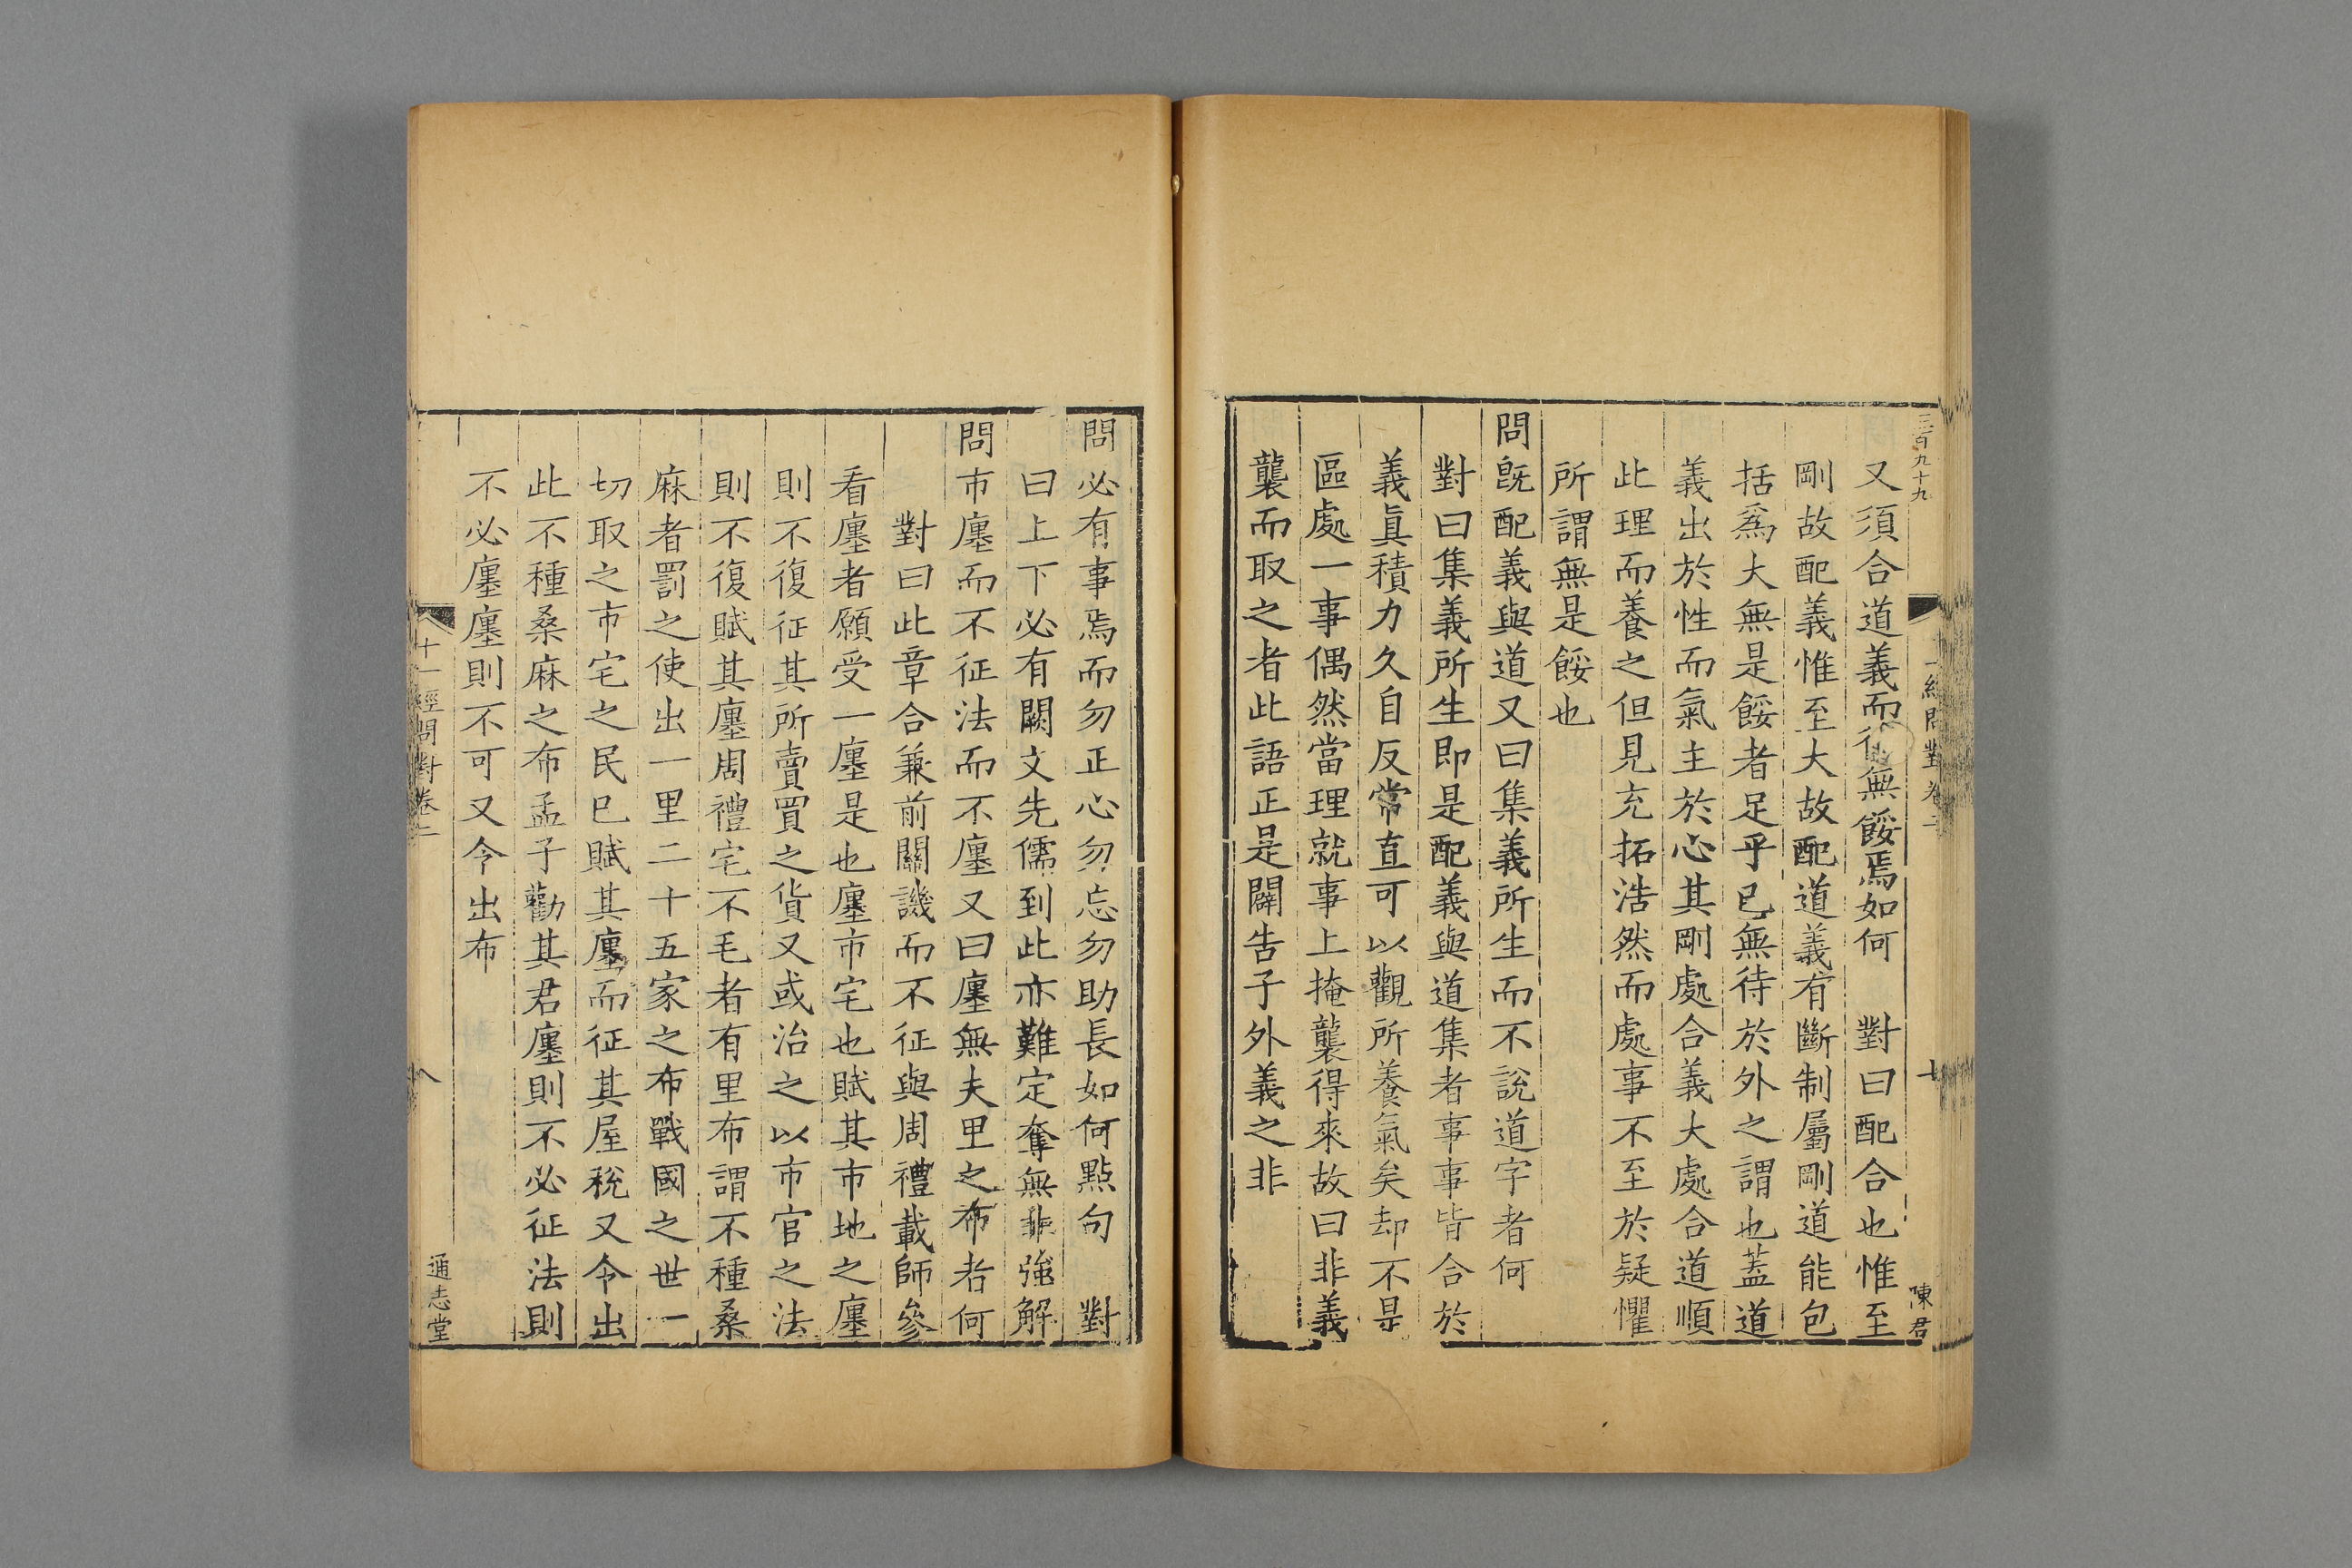 三百九十九
一經問對卷二
七
陳君
又須合道義而後無餒焉如何　對曰配合也惟至
剛故配義惟至大故配道義有斷制屬剛道能包
括爲大無是餒者足乎已無待於外之謂也蓋道
義出於性而氣主於心其剛處合義大處合道順
此理而養之但見充拓浩然而處事不至於疑懼
所謂無是餒也
問旣配義與道又曰集義所生而不說道字者何
對曰集義所生即是配義與道集者事事皆合於
義眞積力久自反常直可以觀所養氣矣却不是
區處一事偶然當理就事上掩襲得來故曰非義
襲而取之者此語正是闢告子外義之非
問必有事焉而勿正心勿忘勿助長如何點句　對
曰上下必有闕文先儒到此亦難定奪無非強解
問市廛而不征法而不廛又曰廛無夫里之布者何
對曰此章合兼前關譏而不征與周禮載師參
看廛者願受一廛是也廛市宅也賦其市地之廛
則不復征其所賣買之貨又或治之以市官之法
則不復賦其廛周禮宅不毛者有里布謂不種桑
麻者罰之使出一里二十五家之布戰國之世一
切取之市宅之民已賦其廛而征其屋稅又令出
此不種桑麻之布孟子勸其君廛則不必征法則
不必廛廛則不可又令出布
十一經問對卷二
八
通志堂